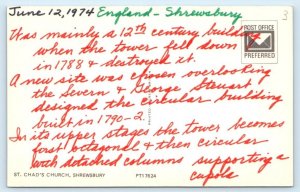 June 12, 1974 England - Shrewsbury
3
POST OFFICE
PREFERRED
Was mainly a 12th century building
when the tower fell down
in 1788 & destroyed it.
A new site was chosen overlooking
the Severn & George Steuart
designed the circular building
built in 1790-2.
In its upper stages the tower becomes
first octagonal & then circular
with detached columns supporting a
cupola
ST. CHAD'S CHURCH, SHREWSBURY PT17624